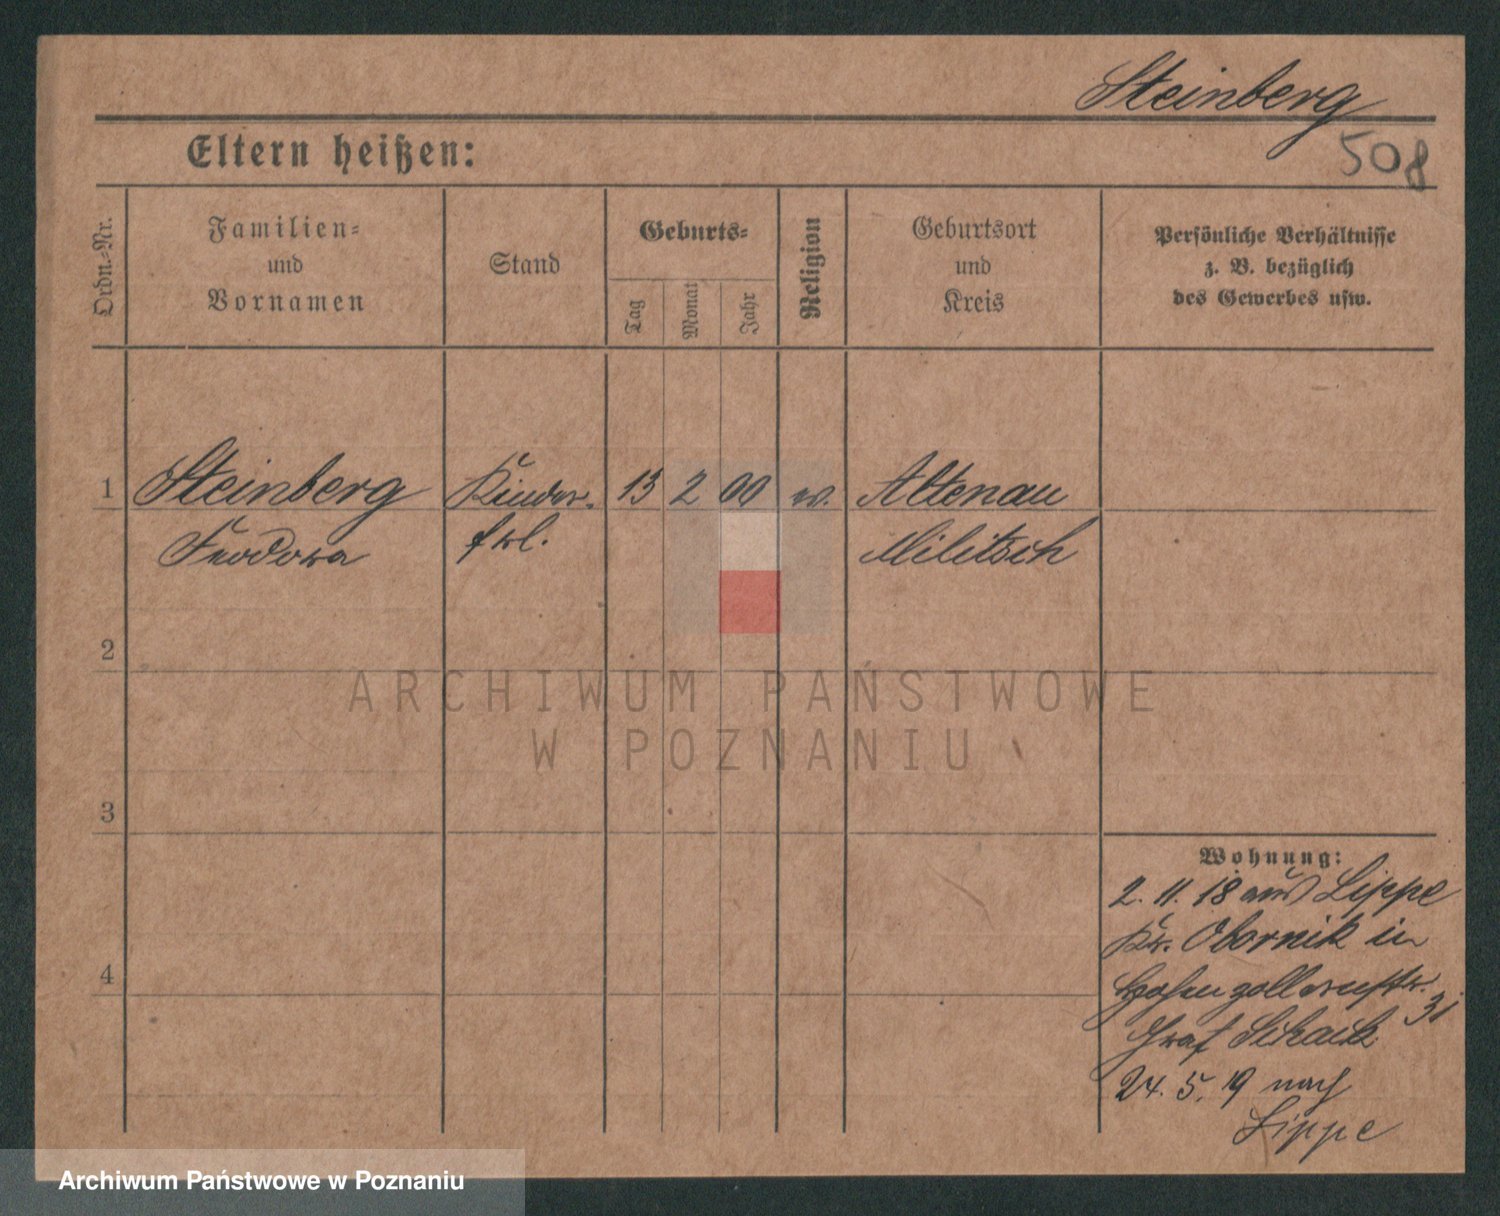 Steinberg
508
Eltern heißen:
Ordn.-Nr.
Familien-
und
Vornamen
Stand
Geburts-
Tag
Monat
Jahr
Religion
Geburtsort
und
Kreis
Persönliche Verhältnisse
z. B. bezüglich
des Gewerbes usw.
1
Steinberg
Kinder-
13
2
00
ev.
Altenau
Feodora
frl.
Militsch
2
ARCHIWUM PAŃSTWOWE
W POZNANIU
3
4
Wohnung:
2. 11. 18 aus Lippe
Kr. Obornik in
Hohenzollernstr.
31
Graf Schack
24. 5. 19 nach
Lippe
Archiwum Państwowe w Poznaniu